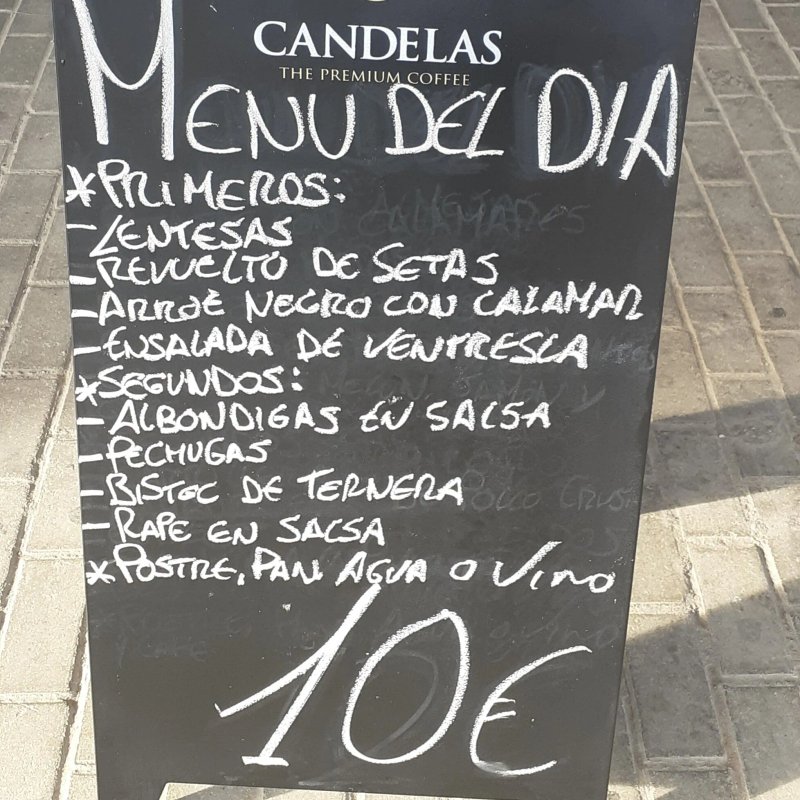 CANDELAS
THE PREMIUM COFFEE
MENU DEL DIA
*PRIMEROS:
-LENTESAS
-REVUELTO DE SETAS
-ARROE NEGRO CON CALAMAR
-ENSALADA DE VENTRESCA
*SEGUNDOS:
-ALBONDIGAS EN SALSA
-PECHUGAS
-BISTEC DE TERNERA
-RAPE EN SALSA
*POSTRE, PAN, AGUA O VINO
10€